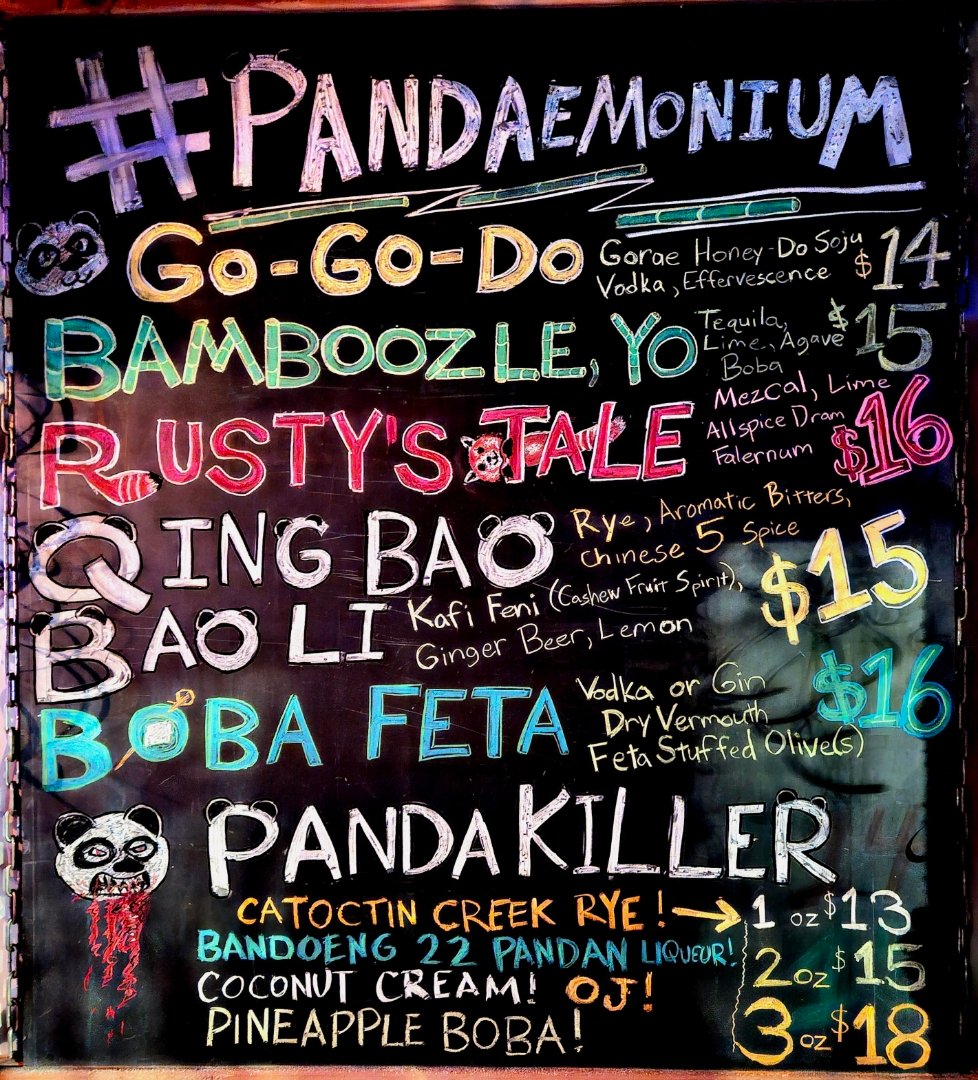 #PANDAEMONIUM
GO-GO-DO Gorae Honey-Do Soju $14
Vodka, Effervescence
BAMBOOZLE, YO Tequila, $15
Lime, Agave
Boba
RUSTY'S TALE Mezcal, Lime $16
Allspice Dram
Falernum
QING BAO Rye, Aromatic Bitters,
Chinese 5 Spice $15
BAO LI Kafi Feni (Cashew Fruit Spirit),
Ginger Beer, Lemon
BOBA FETA Vodka or Gin $16
Dry Vermouth
Feta Stuffed Olive(s)
PANDA KILLER
CATOCTIN CREEK RYE! 1 oz $13
BANDOENG 22 PANDAN LIQUEUR!
COCONUT CREAM! OJ! 2 oz $15
PINEAPPLE BOBA! 3 oz $18